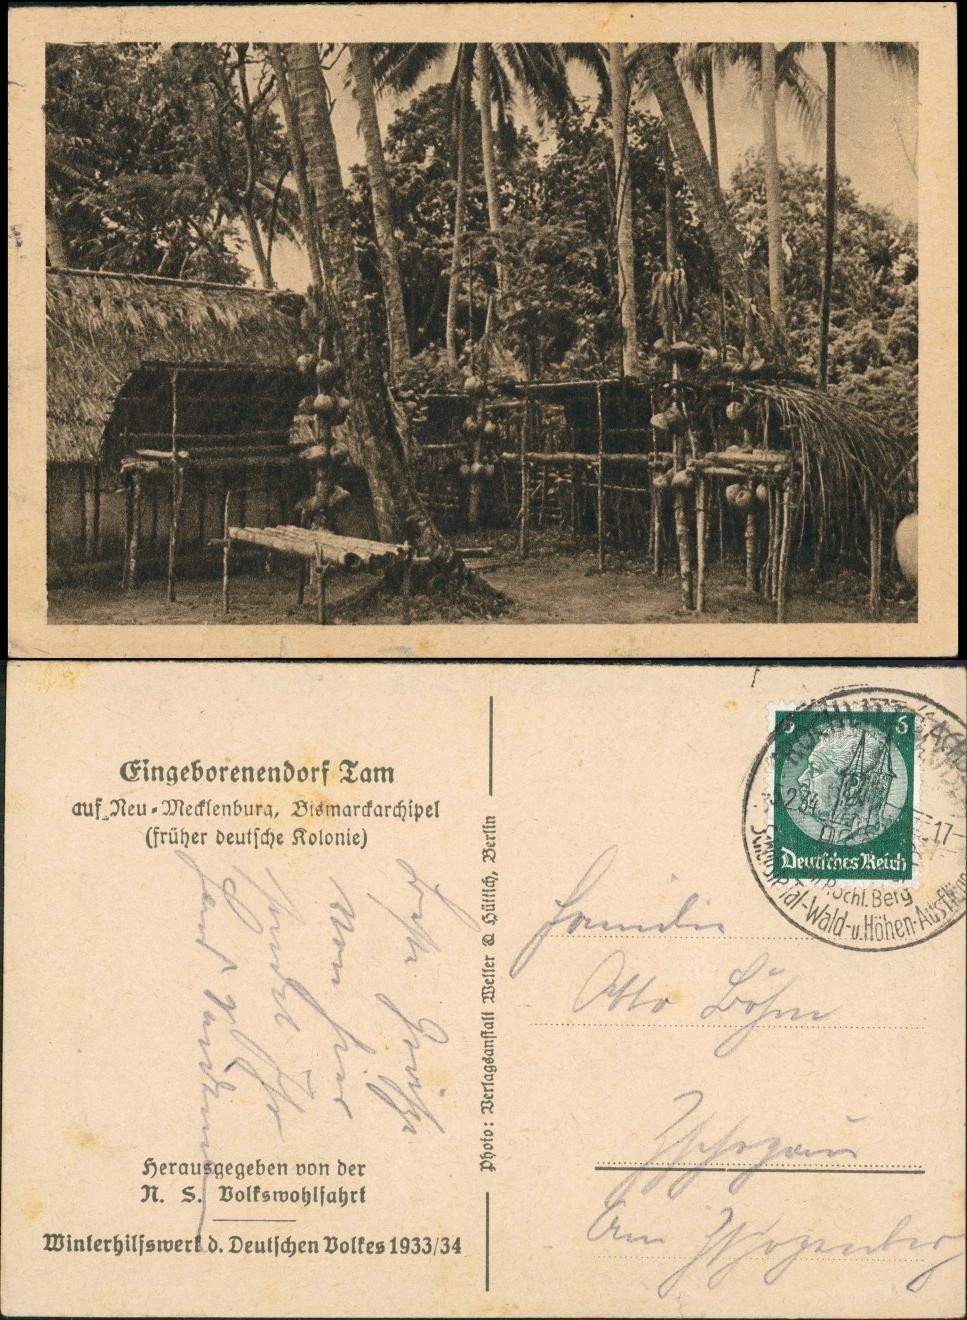 Eingeborenendorf Tam
auf Neu-Mecklenburg, Bismarckarchipel
(früher deutsche Kolonie)
Beste Grüße
von hier
sendet Ihr
Herausgegeben von der
N. S. Volkswohlfahrt
Winterhilfswerk d. Deutschen Volkes 1933/34
Photo: Verlagsanstalt Weller & Hüttich, Berlin
6 6
Deutsches Reich
2.34
17
Rochl. Berg
Tal-Wald-u.Höhen-
Familie
Otto Böhm